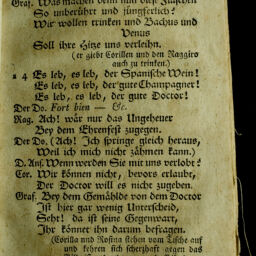 Graf. Was machen denn nun diese Flaschen
So unberührt und jüngferlich?
Wir wollen trinken und Bachus und
Venus
Soll ihre Hitze uns verleihn.
(er giebt Corillen und den Raggiro
auch zu trinken.)
a 4 Es leb, es leb, der Spanische Wein!
Es leb, es leb, der gute Champagner!
Es leb, es leb, der gute Doctor!
Der Do. Fort bien — &c.
Rag. Ach! wär nur das Ungeheuer
Bey dem Ehrenfest zugegen.
Der Do. (Ach! Ich springe gleich heraus,
Weil ich mich nicht zähmen kann.)
D. Anf. Wenn werden Sie mit uns verlobt?
Cor. Wir können nicht, bevors erlaubt,
Der Doctor will es nicht zugeben.
Graf. Bey dem Gemählde von dem Doctor
Ist hier gar wenig Unterscheid,
Seht! da ist seine Gegenwart,
Ihr könnet ihn darum befragen.
(Corilla und Rosina stehen vom Tische auf
und kehren sich scherzhaft gegen das